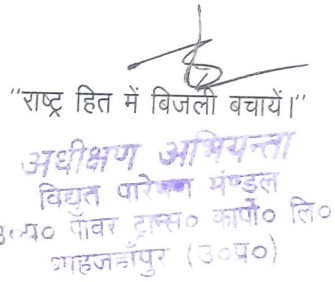 "राष्ट्र हित में बिजली बचायें।"
अधीक्षण अभियन्ता
विद्युत पारेषण मंण्डल
उ०प्र० पॉवर ट्रान्स० कार्पो० लि०
शाहजहाँपुर (उ०प्र०)